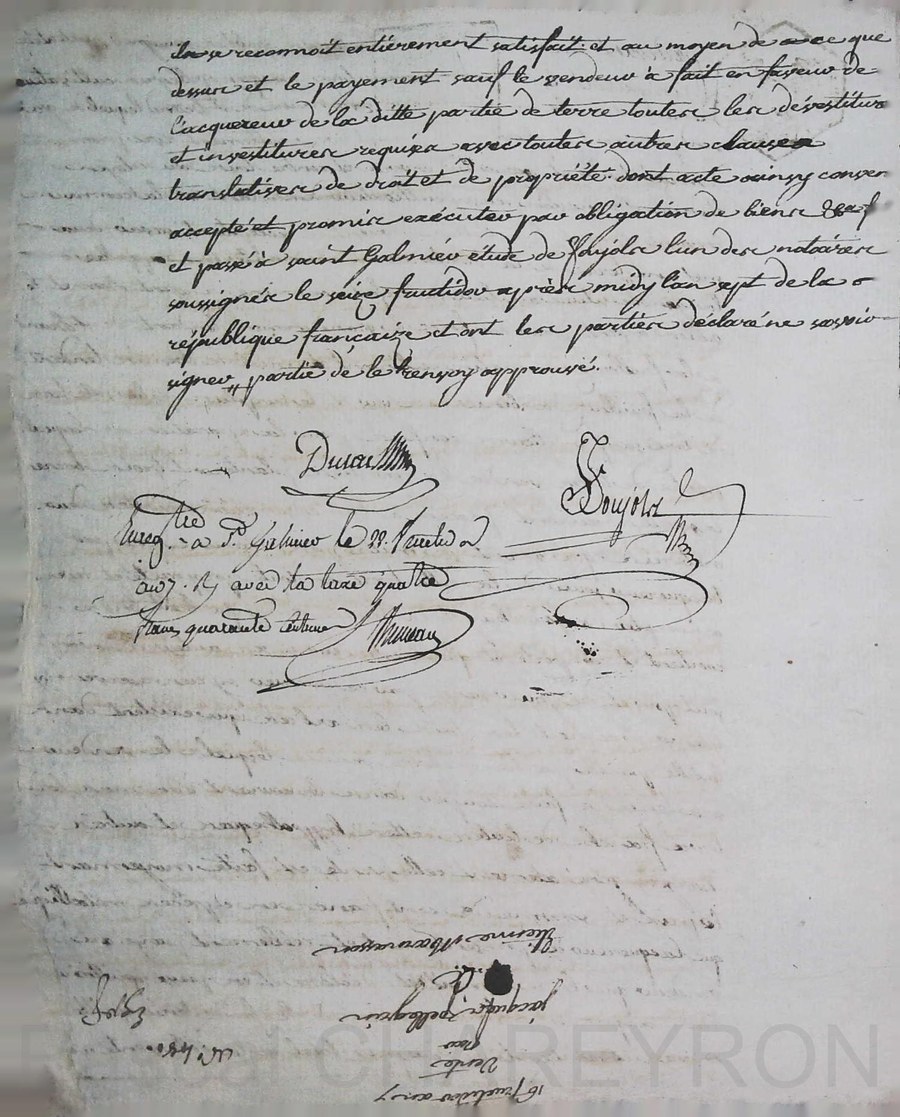 se reconnoit entiérement satisfait. et au moyen de ce que
dessus et le payement sauf le vendeur à fait en faveur de
l'acquereur de la ditte partie de terre toutes les dévestitur
et investitures requises avec toutes autres clauses
translatives de droit et de propriété. dont acte ainsy conven
accepté et promis exécuter par obligation de biens
et passé à saint Galmier étude de foujols l'un des notaires
soussignés le seize fructidor après midy l'an sept de la
république françaize et ont les parties déclaré ne savoir
signer partie de le renvoy approuvé.
foujols
Enreg.tré a St. Galmier le 22. fructidor
an 7. R avec la taxe quatre
francs quarante centimes
16 fructidor an 7
Vente
par
jacques pellegrin
à
Etienne
Exp.
Pascal CHAREYRON